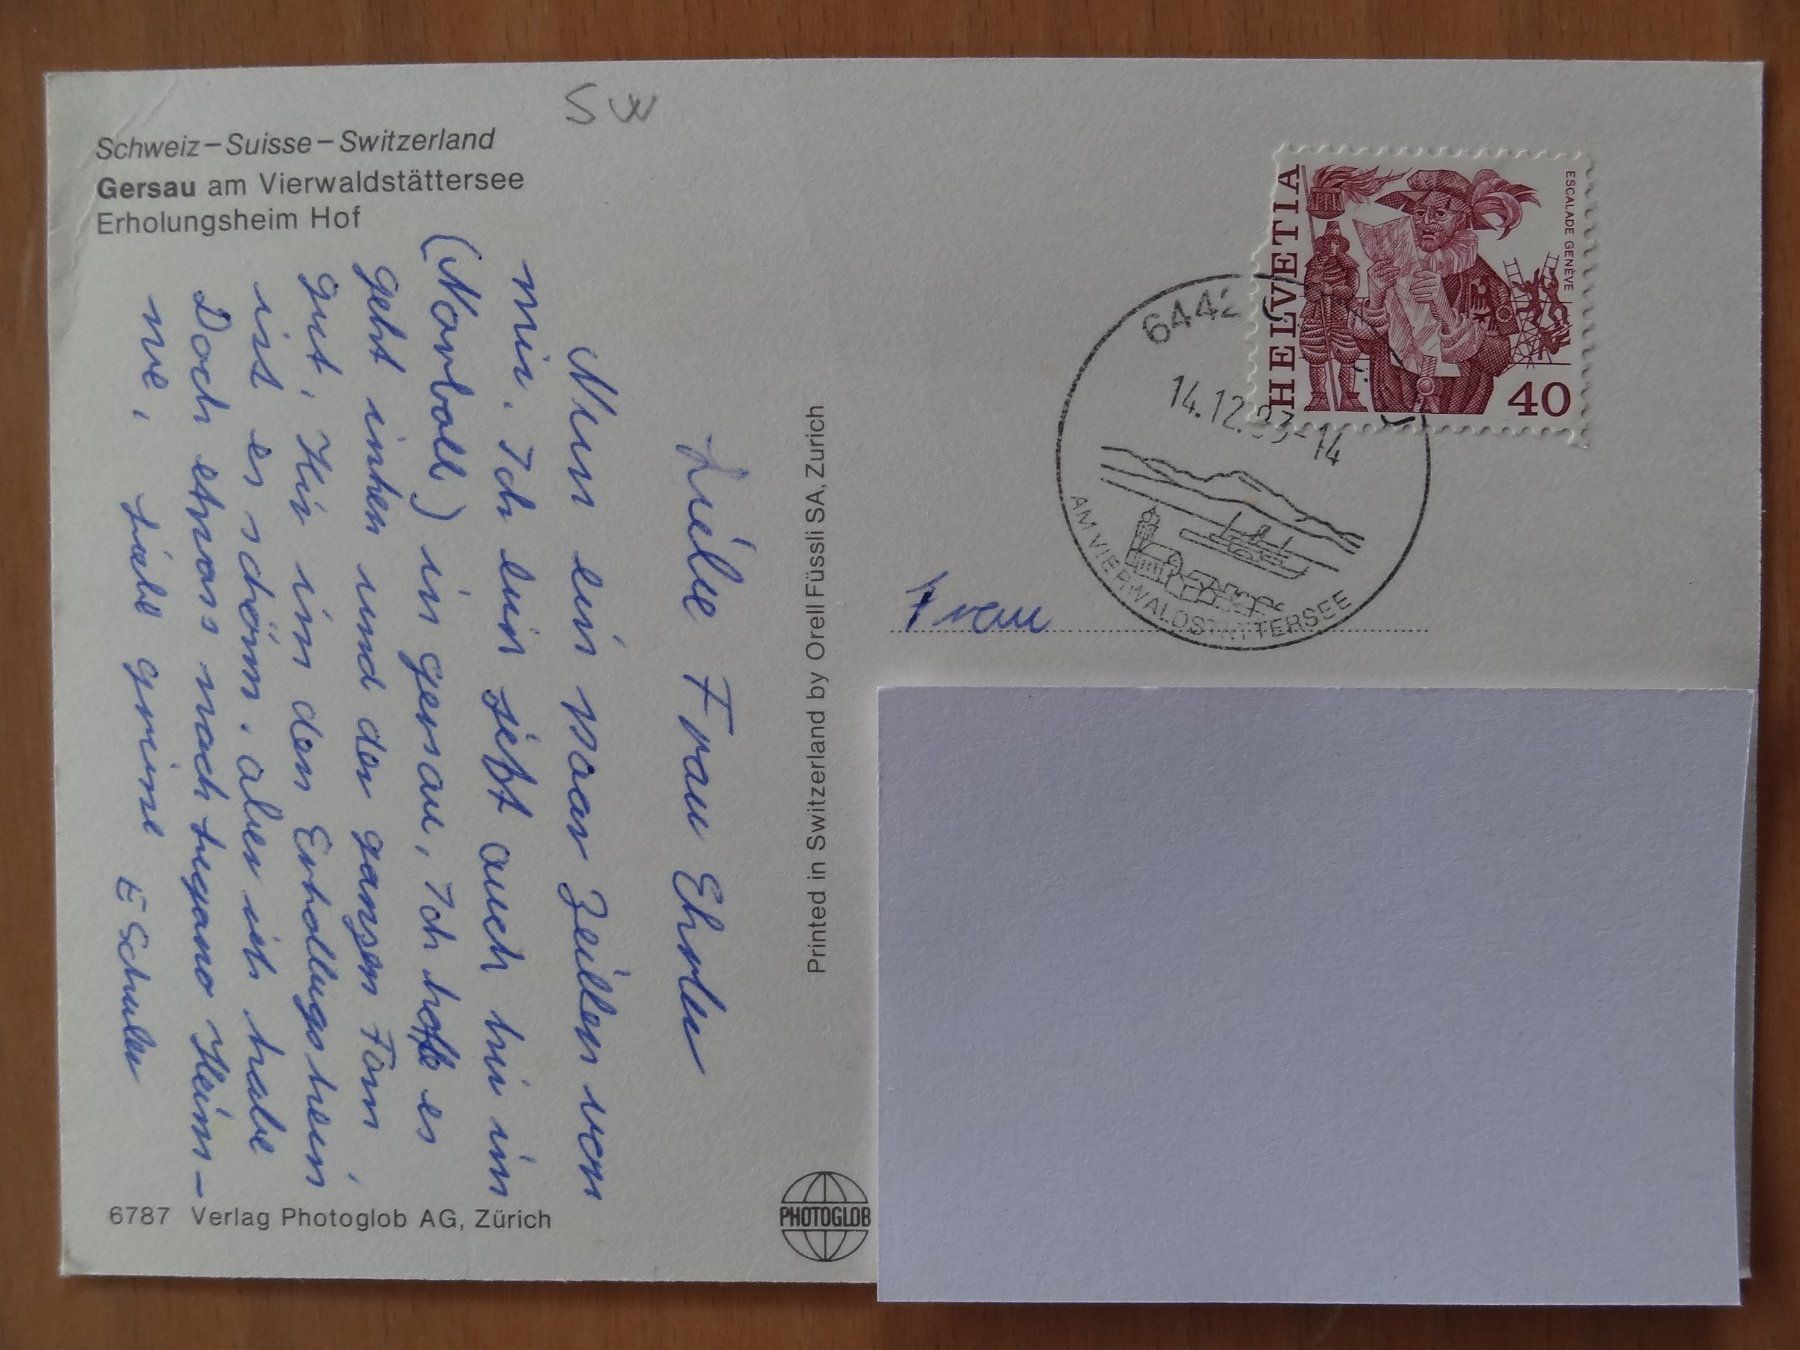 SW
Schweiz – Suisse – Switzerland
Gersau am Vierwaldstättersee
Erholungsheim Hof
Liebe Frau
Nun ein paar Zeilen von
mir. Ich bin jetzt auch hir im
in gersau, Ich hoffe es
geht inhen und der ganzen Fam
gut, Hir im den Erholugsheim
ist es schön. aber ich habe
Doch etwas nach Lugano Heim-
we, Liebe grüne
E Schuler
6787 Verlag Photoglob AG, Zürich
Printed in Switzerland by Orell Füssli SA, Zürich
PHOTOGLOB
HELVETIA
ESCALADE GENÈVE
40
6442
14.12.83-14
AM VIERWALDSTÄTTERSEE
Frau